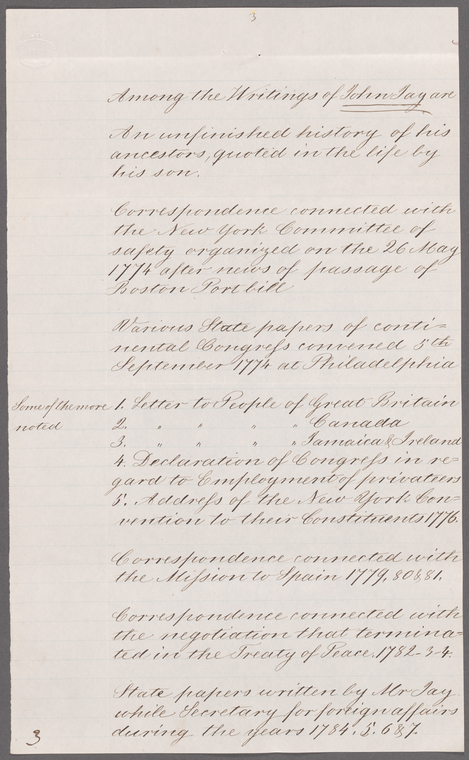 3
Among the Writings of John Jay are
An unfinished history of his
ancestors, quoted in the life by
his son.
Correspondence connected with
the New York Committee of
safety organized on the 26 May
1774 after news of passage of
Boston Port bill
Various State papers of conti=
nental Congress convened 5th
September 1774 at Philadelphia
Some of the more
noted
1. Letter to People of Great Britain
2. " " " " Canada
3. " " " " Jamaica & Ireland
4. Declaration of Congress in re=
gard to Employment of privateers
5. Address of the New York Con=
vention to their Constituents 1776.
Correspondence connected with
the Mission to Spain 1779, 80 & 81.
Correspondence connected with
the negotiation that termina=
ted in the Treaty of Peace. 1782-3-4.
State papers written by Mr Jay
while Secretary for foreign affairs
during the years 1784. 5. 6 & 7.
3